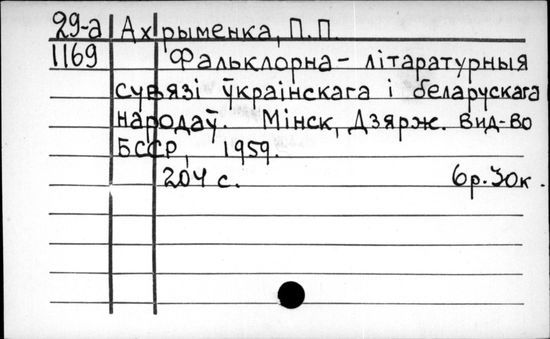 29-а Ахрыменка, П.П.
1169 Фальклорна-літаратурныя
сувязі ўкраінскага і беларускага
народаў. Мінск, Дзярж. вид-во
БССР, 1959.
204 с. 6р.30к.